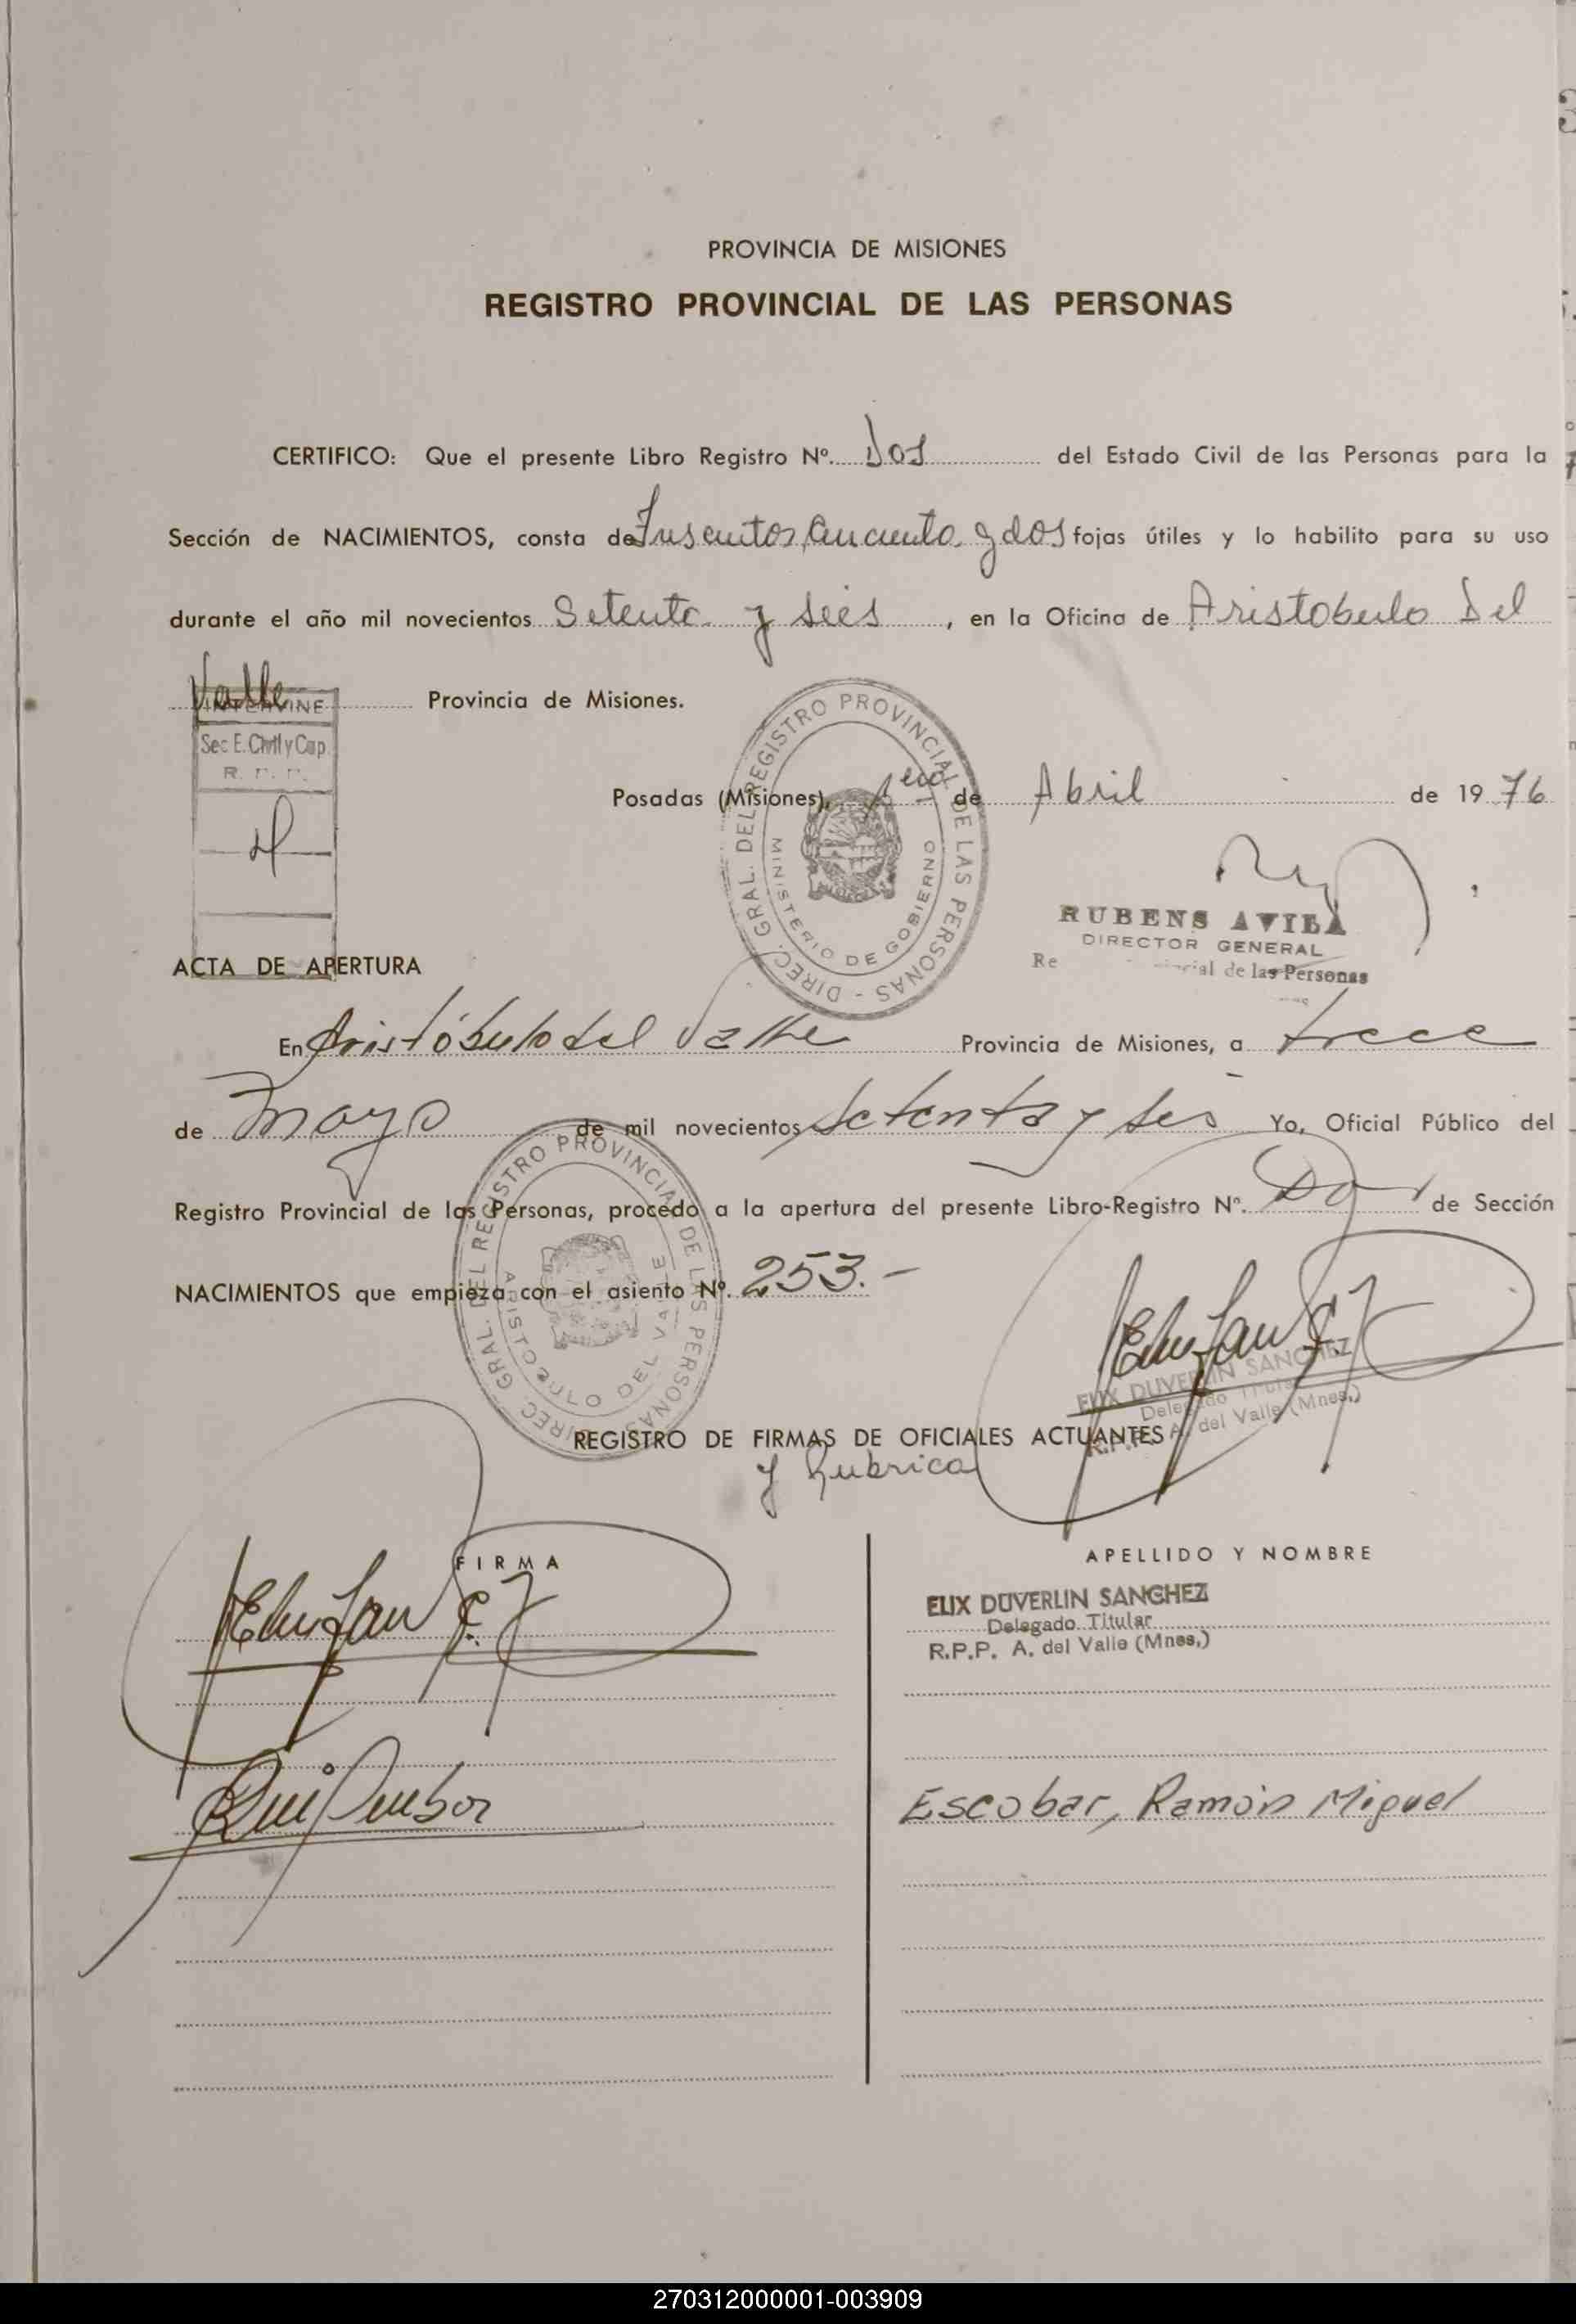 PROVINCIA DE MISIONES
REGISTRO PROVINCIAL DE LAS PERSONAS
CERTIFICO: Que el presente Libro Registro Nº. Dos del Estado Civil de las Personas para la
Sección de NACIMIENTOS, consta de Trescientos cincuenta y dos fojas útiles y lo habilito para su uso
durante el año mil novecientos Setenta y seis, en la Oficina de Aristobulo Del
Valle Provincia de Misiones.
INTERVINE
Sec E. Civil y Cap.
Posadas (Misiones), 1ero de Abril de 1976
DIREC. GRAL. DEL REGISTRO PROVINCIAL DE LAS PERSONAS -
MINISTERIO DE GOBIERNO
RUBENS AVILA
DIRECTOR GENERAL
de las Personas
ACTA DE APERTURA
En Aristóbulo del Valle Provincia de Misiones, a trece
de Mayo de mil novecientos setenta y seis Yo, Oficial Público del
Registro Provincial de las Personas, procedo a la apertura del presente Libro-Registro Nº. Dos de Sección
NACIMIENTOS que empieza con el asiento Nº. 253.-
DIREC. GRAL. DEL REGISTRO PROVINCIAL DE LAS PERSONAS
ARISTOBULO DEL VALLE
ELIX DUVERLIN SANCHEZ
Delegado Titular
R.P.P. A. del Valle (Mnes.)
REGISTRO DE FIRMAS DE OFICIALES ACTUANTES
y Rubrica
FIRMA
APELLIDO Y NOMBRE
ELIX DUVERLIN SANCHEZ
Delegado Titular
R.P.P. A. del Valle (Mnes.)
Escobar, Ramón Miguel
270312000001-003909